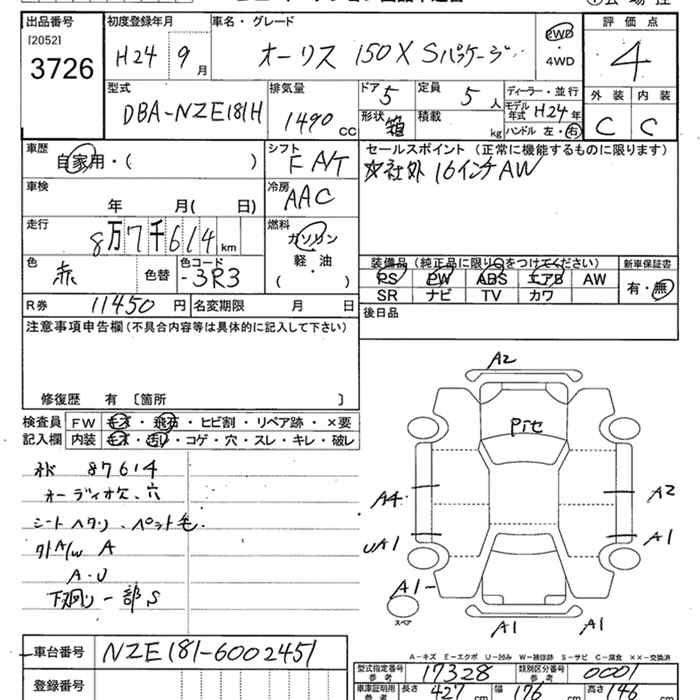 出品番号 初度登録年月 車名・グレード 評価点
[2052] 3726 H24年 9月 オーリス 150X Sパッケージ 2WD・4WD 4
型式 排気量 ドア 定員 ディーラー・並行 外装 内装
DBA-NZE181H 1490 CC 5 5人 モデル年式 H24年 C C
形状 箱 積載 kg ハンドル 左・右
車歴 シフト セールスポイント (正常に機能するものに限ります)
自家用・( ) F A/T 社外 16インチAW
車検 冷房
年 月( 日) AAC
走行 燃料
8万7千614km ガソリン
軽・油
( )
色 色コード 装備品(純正品に限り○をつけてください) 新車保証書
赤 色替 -3R3 PS PW ABS エアB AW 有・無
SR ナビ TV カワ
R券 11450 円 名変期限 月 日
後日品
注意事項申告欄(不具合内容等は具体的に記入して下さい)
修復歴 有 〔箇所 〕
検査員 FW キズ・飛石・ヒビ割・リペア跡・×要
記入欄 内装 キズ・汚れ・コゲ・穴・スレ・キレ・破レ
87614
オーディオ欠、穴
シートヘタリ、ペット毛
外A/W A
A・U
下廻り一部S
A2
Pセ
A4
A2
UA1
A1
A1-
スペア
A1
A1
A-キズ E-エクボ U-凹み W-補修跡 S-サビ C-腐食 ××-交換済
車台番号 NZE181-6002451
型式指定番号 参考 17328 類別区分番号 参考 0001
登録番号
車庫証明用 参考 長さ 427 cm 幅 176 cm 高さ 146 cm